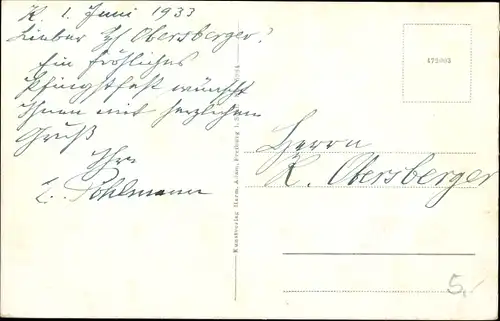 K. 1. Juni 1933
Lieber Obersberger!
Ein fröhliches
Pfingstfest wünscht
Ihnen mit herzlichem
Gruß
Ihr
E. Pohlmann
Kunstverlag Herm. Freiburg
173093
Herrn
K. Obersberger
5,-